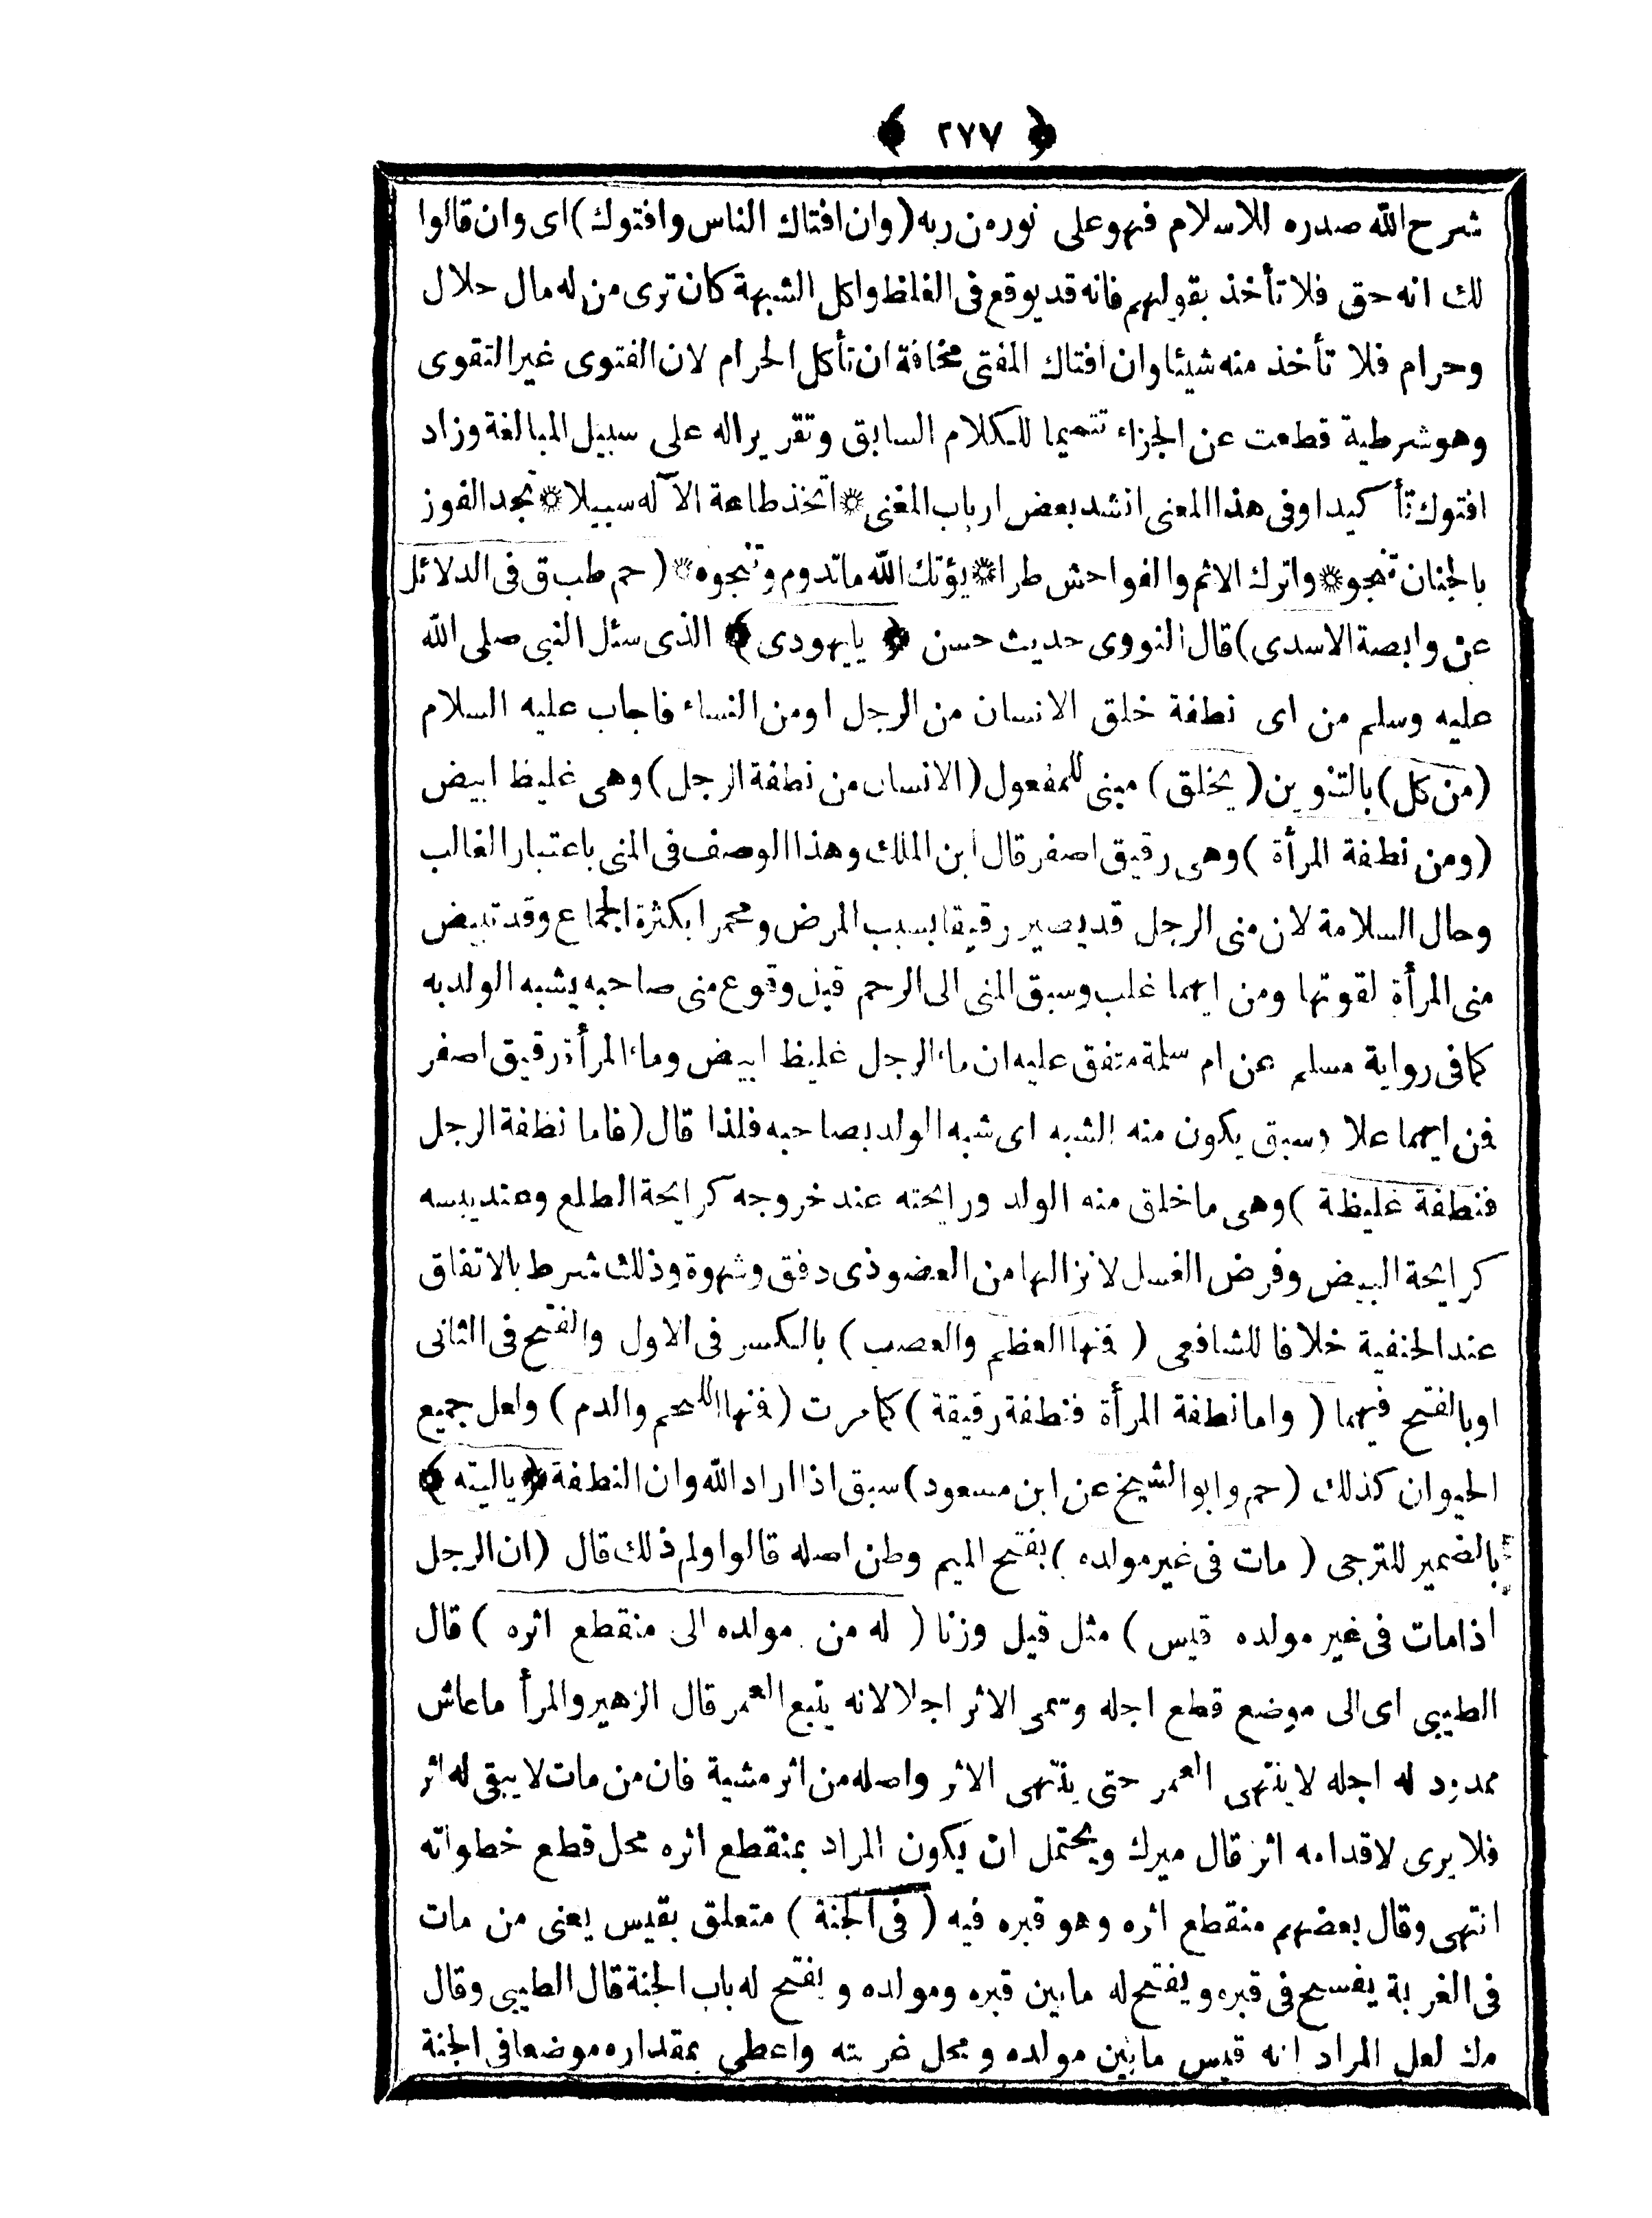 ﴿ ٢٧٧ ﴾
شرح الله صدره للاسلام فهو على نور من ربه (وان افتاك الناس وافتوك) اى وان قالوا
لك انه حق فلا تأخذ بقولهم فانه قد يوقع فى الغلظ واكل الشبهة كان ترى من له مال حلال
وحرام فلا تأخذ منه شيئا وان افتاك المفتى مخافة ان تأكل الحرام لان الفتوى غير التقوى
وهو شرطية قطعت عن الجزاء تتميما للكلام السابق وتقريرا له على سبيل المبالغة وزاد
افتوك تأكيدا وفى هذا المعنى انشد بعض ارباب المغنى * اتخذ طاعة الآله سبيلا * تجد الفوز
بالجنان تنجو * واترك الاثم والفواحش طرا * يؤتك الله ما تدوم وتنجوه * (حم طب ق فى الدلائل
عن وابصة الاسدى) قال النووى حديث حسن ﴿ يايهودى ﴾ الذى سئل النبى صلى الله
عليه وسلم من اى نطفة خلق الانسان من الرجل او من النساء فاجاب عليه السلام
(من كل) بالتنوين (يخلق) مبنى للمفعول (الانسان من نطفة الرجل) وهى غليظ ابيض
(ومن نطفة المرأة) وهى رقيق اصفر قال ابن الملك وهذا الوصف فى المنى باعتبار الغالب
وحال السلامة لان منى الرجل قد يصير رقيقا بسبب المرض ومحمرا بكثرة الجماع وقد تبيض
منى المرأة لقوتها ومن ايهما غلب وسبق المنى الى الرحم قبل وقوع منى صاحبه يشبه الولد به
كما فى رواية مسلم عن ام سلمة متفق عليه ان ماء الرجل غليظ ابيض وماء المرأة رقيق اصفر
فمن ايهما علا وسبق يكون منه الشبه اى شبه الولد بصاحبه فلذا قال (فاما نطفة الرجل
فنطفة غليظة) وهى ما خلق منه الولد ورايحته عند خروجه كرايحة الطلع وعند يبسه
كرايحة البيض وفرض الغسل لانزالها من العضو ذى دفق وشهوة وذلك شرط بالاتفاق
عند الحنفية خلافا للشافعى (فمنها العظم والعصب) بالكسر فى الاول والفتح فى الثانى
او بالفتح فيهما (واما نطفة المرأة فنطفة رقيقة) كما مرت (فمنها اللحم والدم) ولعل جميع
الحيوان كذلك (حم وابو الشيخ عن ابن مسعود) سبق اذا اراد الله وان النطفة ﴿ ياليته ﴾
بالضمير للترجى (مات فى غير مولده) بفتح الميم وطن اصله قالوا ولم ذلك قال (ان الرجل
اذا مات فى غير مولده قيس) مثل قيل وزنا (له من مولده الى منقطع اثره) قال
الطيبى اى الى موضع قطع اجله وسمى الاثر اجلا لانه يتبع العمر قال الزهير والمرأ ما عاش
ممدود له اجله لا ينتهى العمر حتى ينتهى الاثر واصله من اثر مشية فان من مات لا يبقى له اثر
فلا يرى لاقدامه اثر قال ميرك ويحتمل ان يكون المراد بمنقطع اثره محل قطع خطواته
انتهى وقال بعضهم منقطع اثره وهو قبره فيه (فى الجنة) متعلق بقيس يعنى من مات
فى الغربة يفسح فى قبره ويفتح له ما بين قبره ومولده ويفتح له باب الجنة قال الطيبى وقال
لعل المراد انه قيس ما بين مولده ومحل غربته واعطى بمقداره موضعا فى الجنة